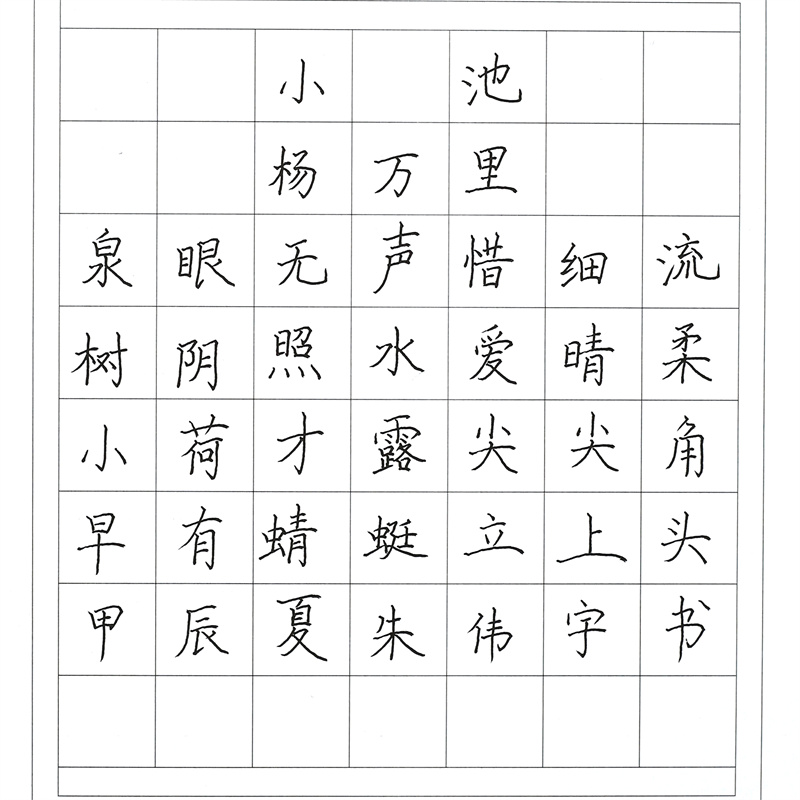 小池
杨万里
泉眼无声惜细流
树阴照水爱晴柔
小荷才露尖尖角
早有蜻蜓立上头
甲辰夏朱伟字书